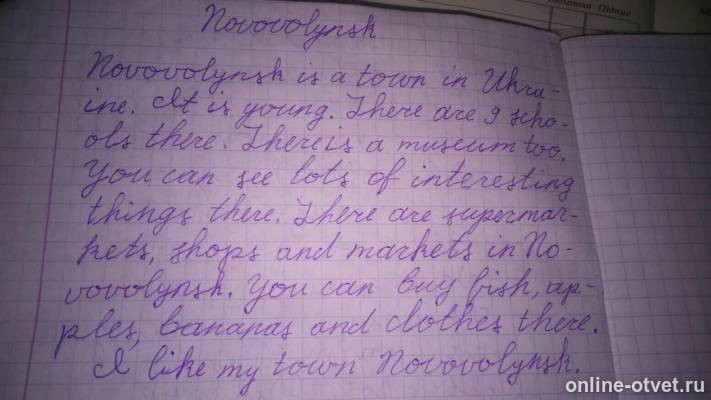 Novovolynsk
Novovolynsk is a town in Ukra-
ine. It is young. There are 9 scho-
ols there. There is a museum too.
You can see lots of interesting
things there. There are supermar-
kets, shops and markets in No-
vovolynsk. You can buy fish, ap-
ples, bananas and clothes there.
I like my town Novovolynsk.
Підпис
online-otvet.ru